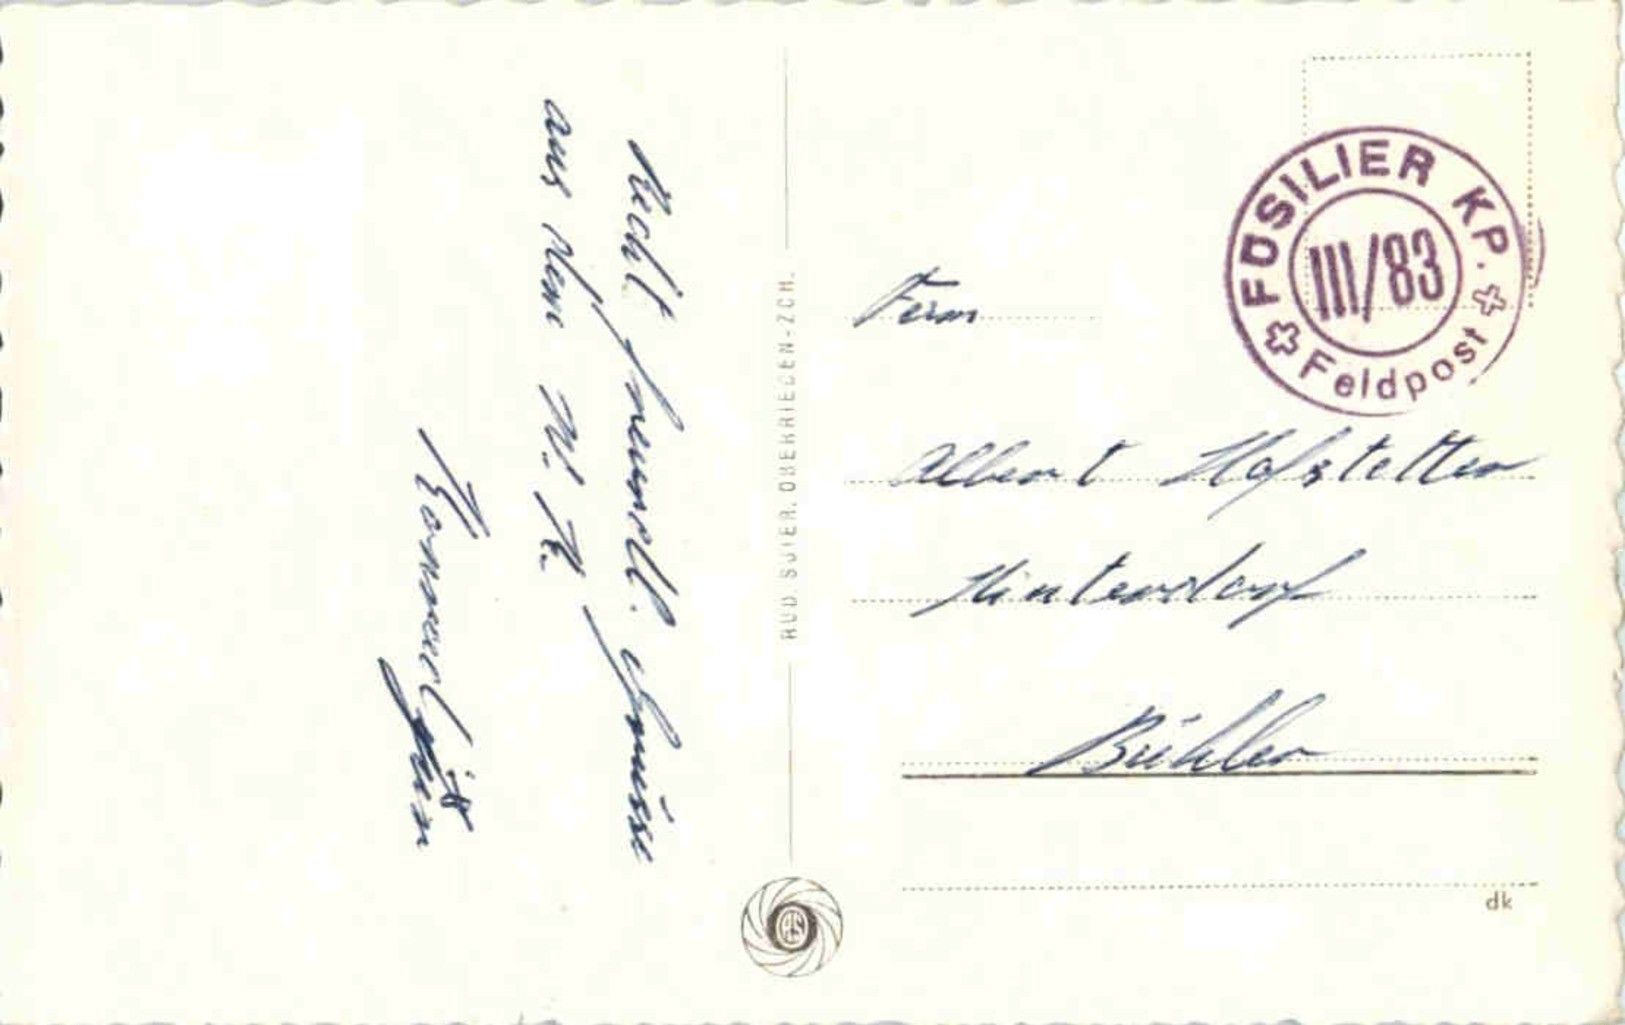 Recht freundl. Grüsse
aus dem W. K.
RUD SUTER. OBERRIEDEN-ZCH.
FÜSILIER KP.
III/83
Feldpost
Fam
Albert Hofstetter
Hinterdorf
Bühler
dk